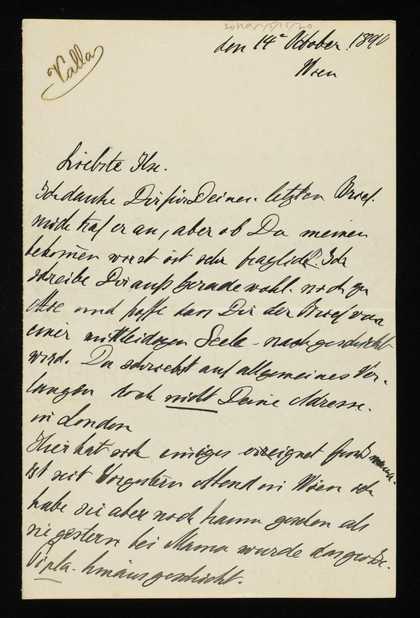 den 14ᵉ October 1890
Wien
Valla
Liebste Ilse.
Ich danke Dir für Deinen letzten Brief.
mich traf er an, aber ob Du meinen
bekommen wirst ist sehr fraglich. Ich
schreibe Dir aufs Geradewohl noch zu
und hoffe dass Dir der Brief von
einer mitleidigen Seele nachgeschickt
wird. Du schreibst auf allgemeines Ver-
langen doch nicht Deine Adresse
in London
Hier hat sich einiges ereignet
ist seit Vorgestern Abend in Wien ich
habe sie aber noch kaum gesehen als
sie gestern bei Mama wurde das
hinausgeschickt.